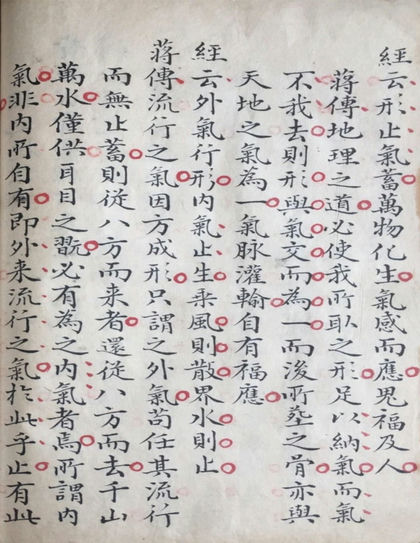 經云形止氣蓄萬物化生氣感而應鬼福及人
蔣傳地理之道必使我所取之形足以納氣而氣
不我去則形與氣交而為一而後所塟之骨亦與
天地之氣為一氣脉灌輸自有福應
經云外氣行形內氣止生乘風則散界水則止
蔣傳流行之氣因方成形只謂之外氣苟任其流行
而無止蓄則從八方而来者還從八方而去千山
萬水僅供耳目之翫必有為之內氣者焉所謂內
氣非內所自有即外来流行之氣於此乎止有此